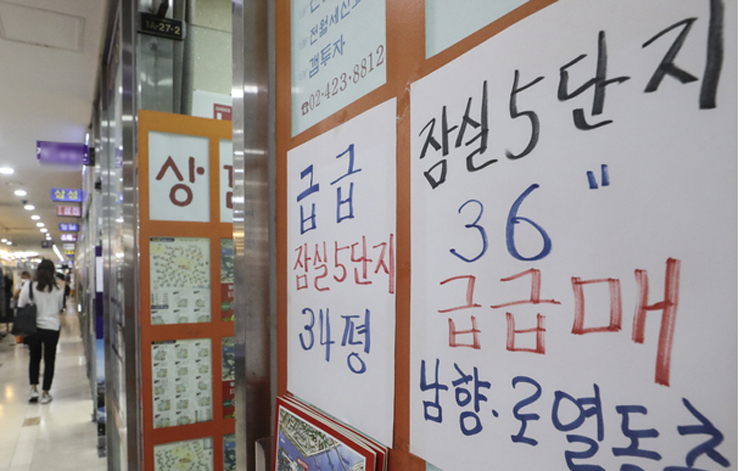 1A-27-2
전월세신고
갭투자
☎02·423·8812
상
급급
잠실5단지
34평
잠실5단지
36"
급급매
남향. 로열도